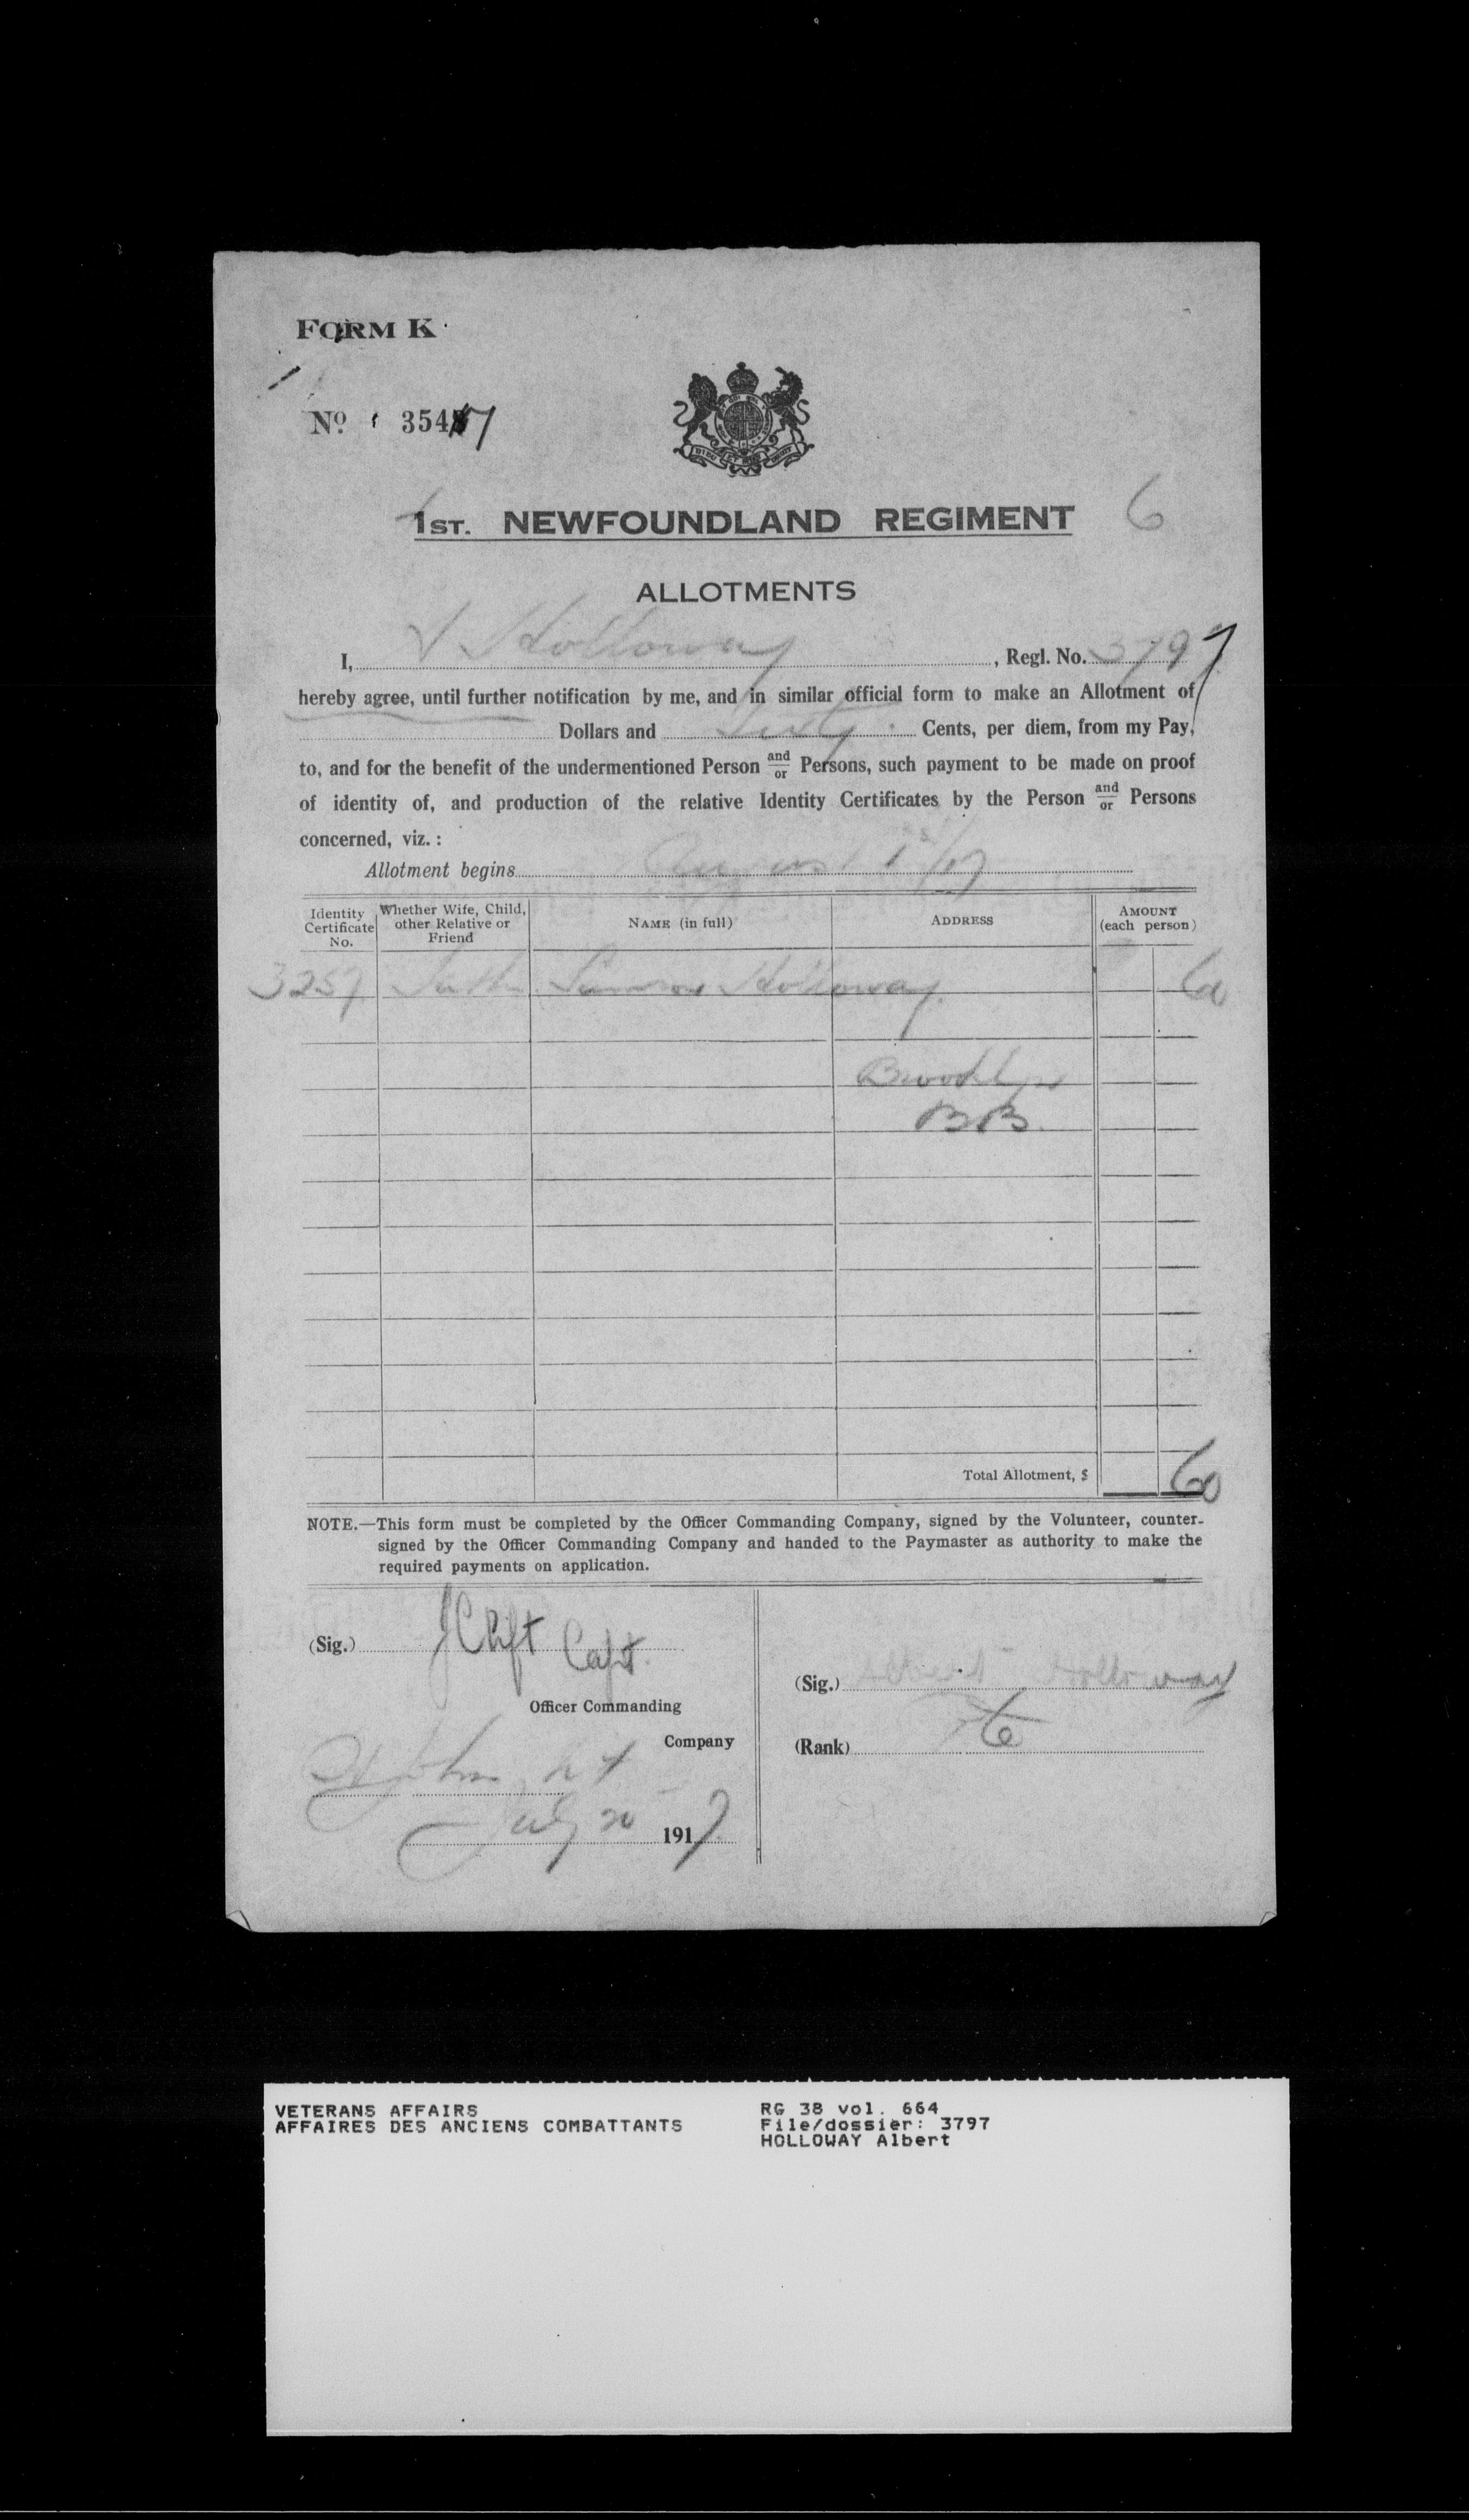 FORM K
No. 35457
1ST. NEWFOUNDLAND REGIMENT 6
ALLOTMENTS
I, A Holloway, Regl. No. 3797
hereby agree, until further notification by me, and in similar official form to make an Allotment of
Dollars and Sixty Cents, per diem, from my Pay,
to, and for the benefit of the undermentioned Person and/or Persons, such payment to be made on proof
of identity of, and production of the relative Identity Certificates by the Person and/or Persons
concerned, viz. :
Allotment begins August 1st/17
Identity Certificate No. Whether Wife, Child, other Relative or Friend NAME (in full) ADDRESS AMOUNT (each person)
3257 Father Holloway 60
Brooklyn
BB.
Total Allotment, $ 60
NOTE.—This form must be completed by the Officer Commanding Company, signed by the Volunteer, counter-
signed by the Officer Commanding Company and handed to the Paymaster as authority to make the
required payments on application.
(Sig.) J Clift Capt.
Officer Commanding
Company
St Johns
July 20 1917
(Sig.) Albert Holloway
(Rank) Pte
VETERANS AFFAIRS
AFFAIRES DES ANCIENS COMBATTANTS
RG 38 vol. 664
File/dossier: 3797
HOLLOWAY Albert